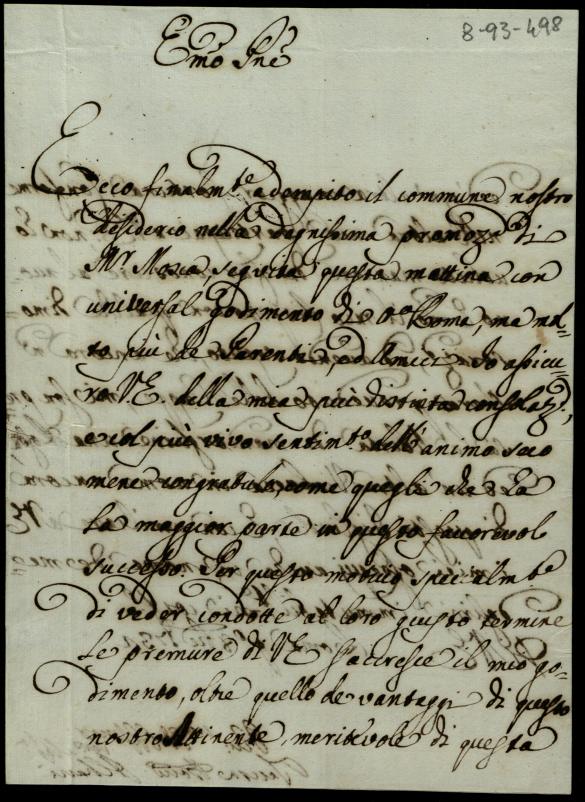 8-93-498
Emo Sne
Ecco finalmte adempito il commune nostro
desiderio nella degnissima promoze di
Mr Mosca, seguita questa mattina con
universal godimento di Roma, ma mol=
to più de Parenti, ed Amici. Io assicu=
ro V.E. della mia più distinta consolatze,
e col più vivo sentimto dell'animo seco
mene congratulo, come quegli che ha
la maggior parte in questo favorevole
successo. Per questo motivo specialmte
di veder condotte al loro giusto termine
le premure di VE s'accresce il mio go=
dimento, oltre quello de vantaggi di questo
nostro Attinente, meritevole di questa